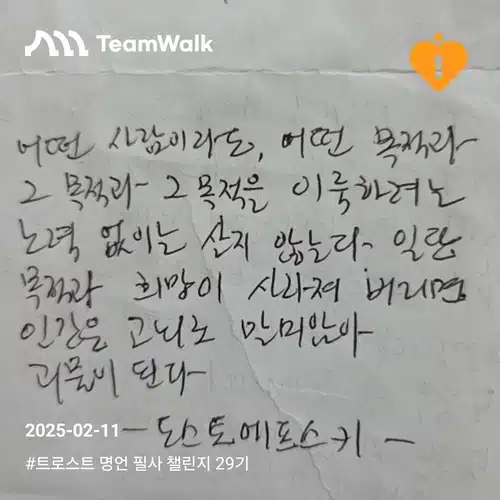 TeamWalk
어떤 사람이라도, 어떤 목적과
그 목적과 그 목적을 이룩하려는
노력 없이는 살지 않는다. 일단
목적과 희망이 사라져 버리면
인간은 고뇌로 말미암아
괴물이 된다
2025-02-11 - 도스토예프스키 -
#트로스트 명언 필사 챌린지 29기